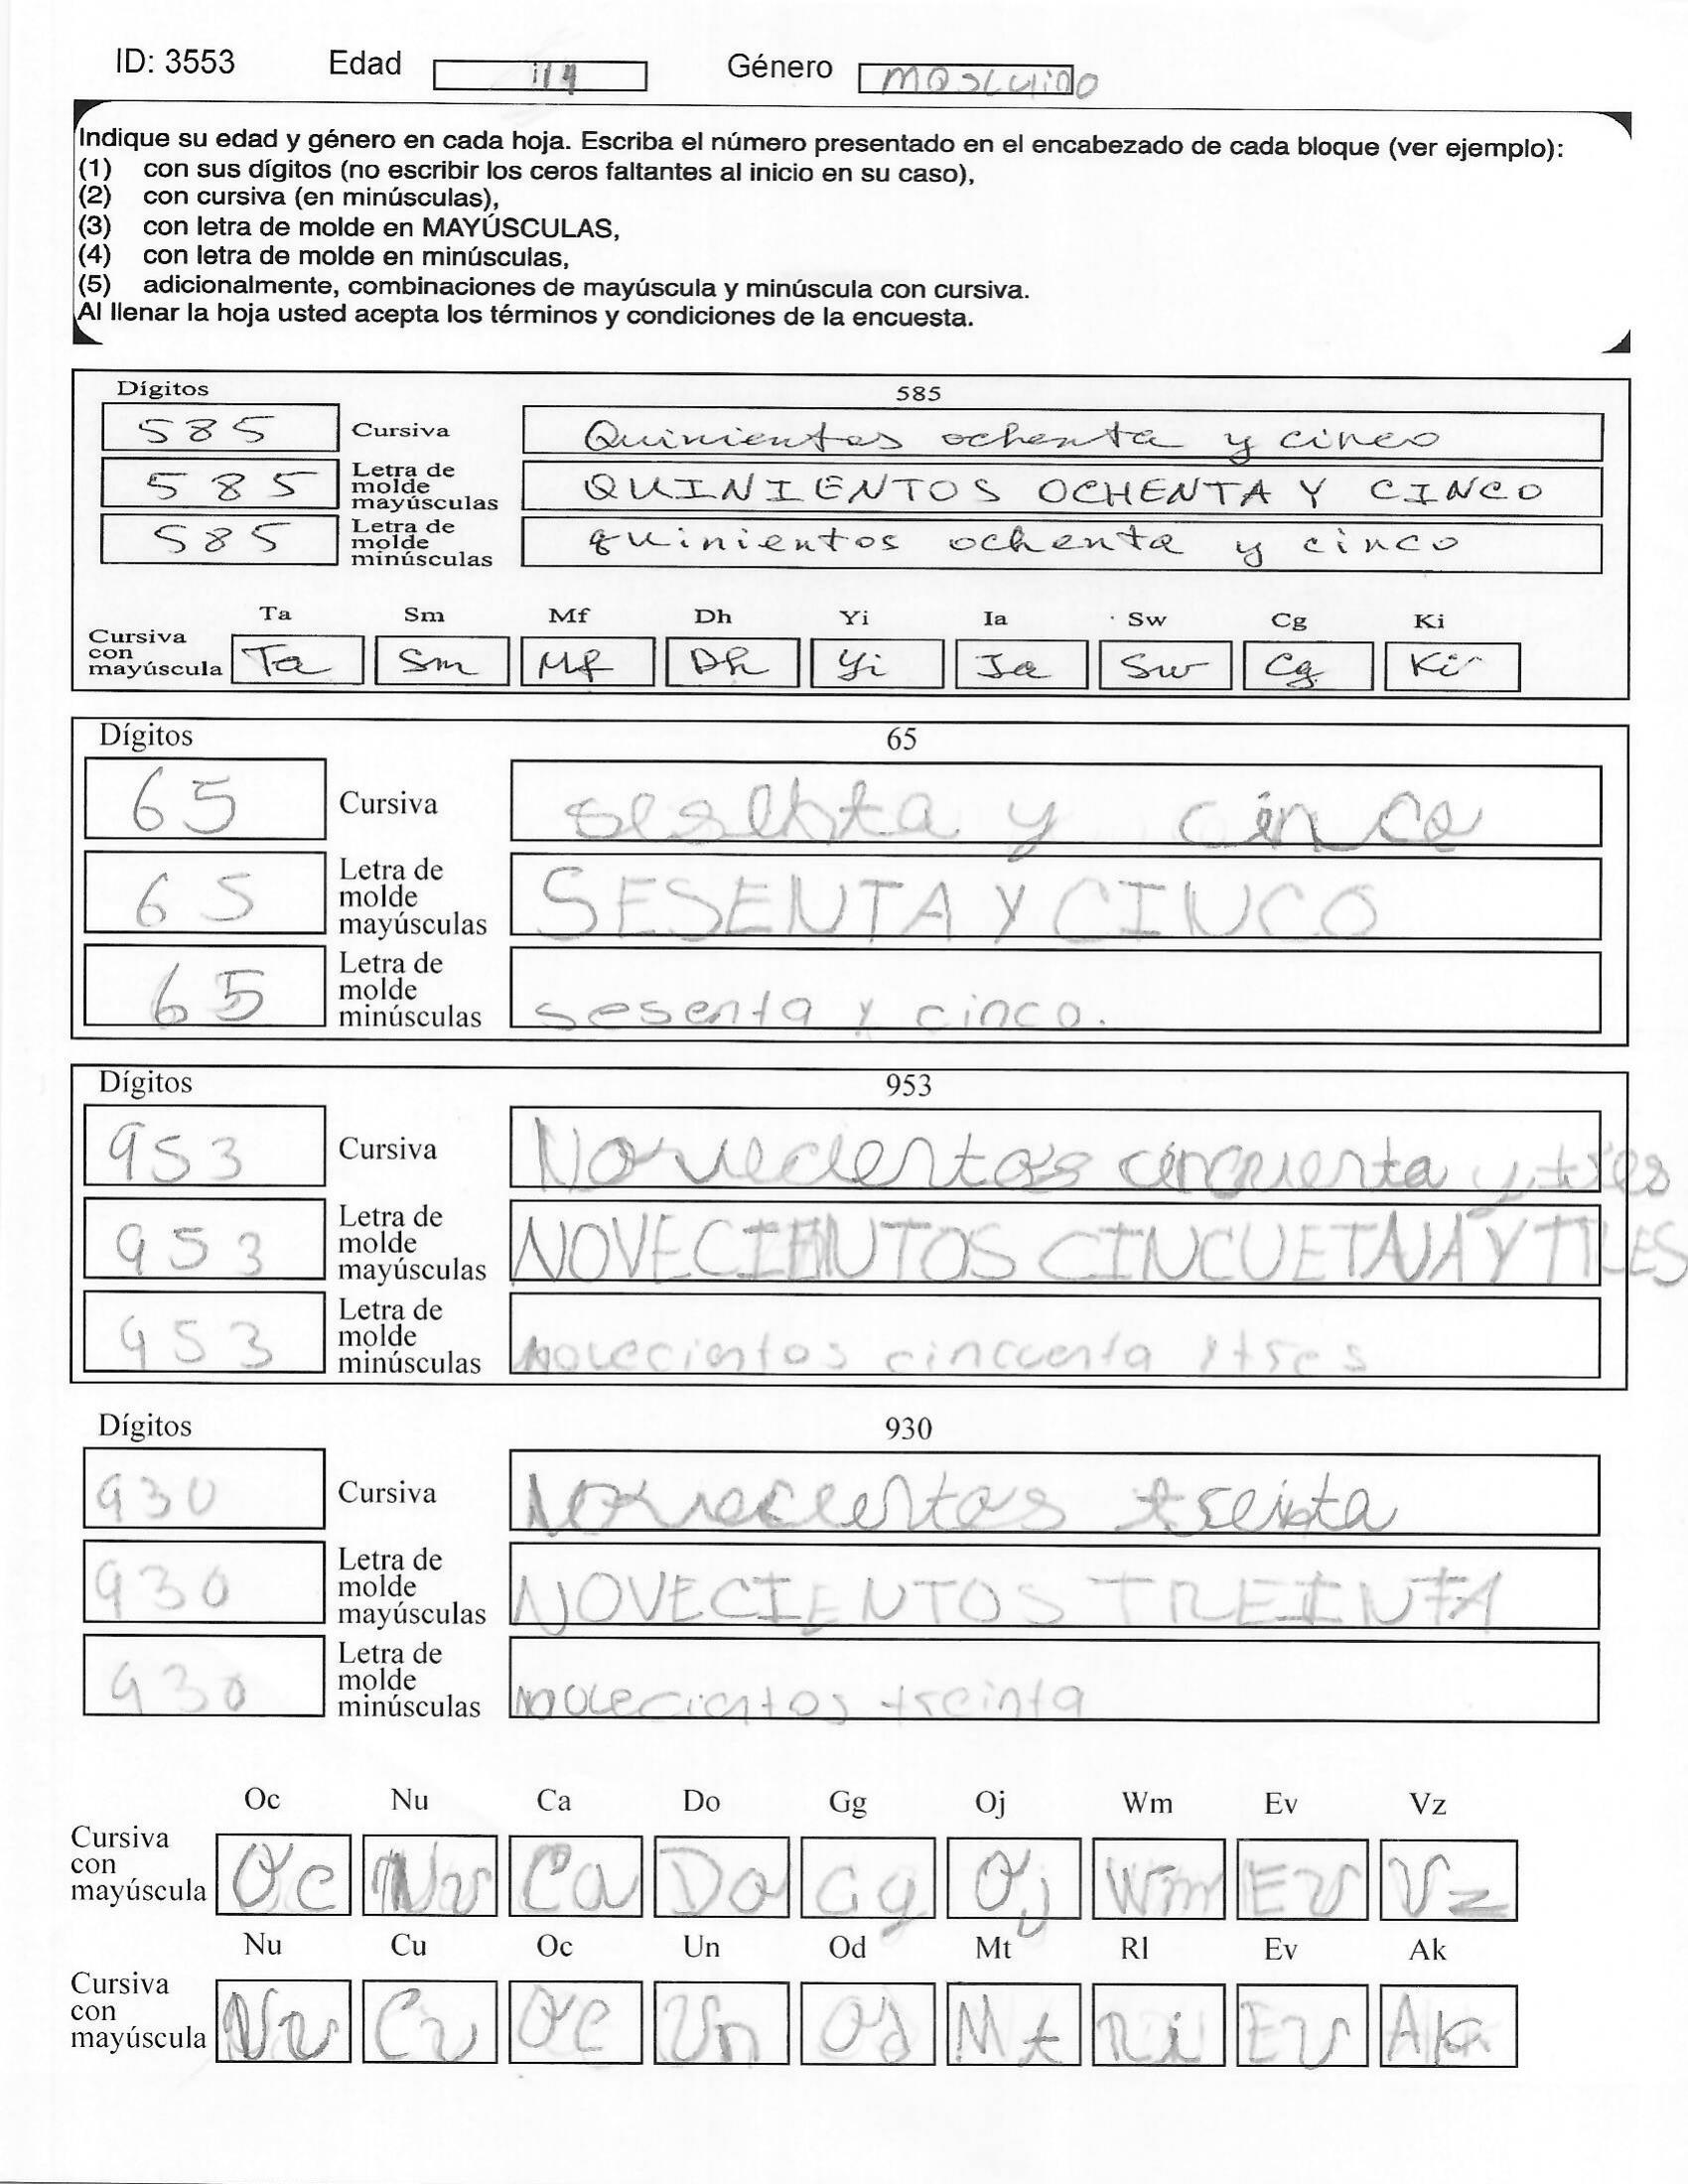 ID: 3553 Edad Género masculino
Indique su edad y género en cada hoja. Escriba el número presentado en el encabezado de cada bloque (ver ejemplo):
(1) con sus dígitos (no escribir los ceros faltantes al inicio en su caso),
(2) con cursiva (en minúsculas),
(3) con letra de molde en MAYÚSCULAS,
(4) con letra de molde en minúsculas,
(5) adicionalmente, combinaciones de mayúscula y minúscula con cursiva.
Al llenar la hoja usted acepta los términos y condiciones de la encuesta.
Dígitos 585
585 Cursiva Quinientos ochenta y cinco
585 Letra de molde mayúsculas QUINIENTOS OCHENTA Y CINCO
585 Letra de molde minúsculas quinientos ochenta y cinco
Ta Sm Mf Dh Yi Ia Sw Cg Ki
Cursiva con mayúscula Ta Sm Mf Dh Yi Ia Sw Cg Ki
Dígitos 65
65 Cursiva sesenta y cinco
65 Letra de molde mayúsculas SESENTA Y CINCO
65 Letra de molde minúsculas sesenta y cinco.
Dígitos 953
953 Cursiva Novecientos cincuenta y tres
953 Letra de molde mayúsculas NOVECIENTOS CINCUETNA Y TRES
953 Letra de molde minúsculas novecientos cincuenta y tres
Dígitos 930
930 Cursiva Novecientos treinta
930 Letra de molde mayúsculas NOVECIENTOS TREINTA
930 Letra de molde minúsculas novecientos treinta
Oc Nu Ca Do Gg Oj Wm Ev Vz
Cursiva con mayúscula Oc Nu Ca Do Gg Oj Wm Ev Vz
Nu Cu Oc Un Od Mt Rl Ev Ak
Cursiva con mayúscula Nu Cu Oc Un Od Mt Ri Ev Ak